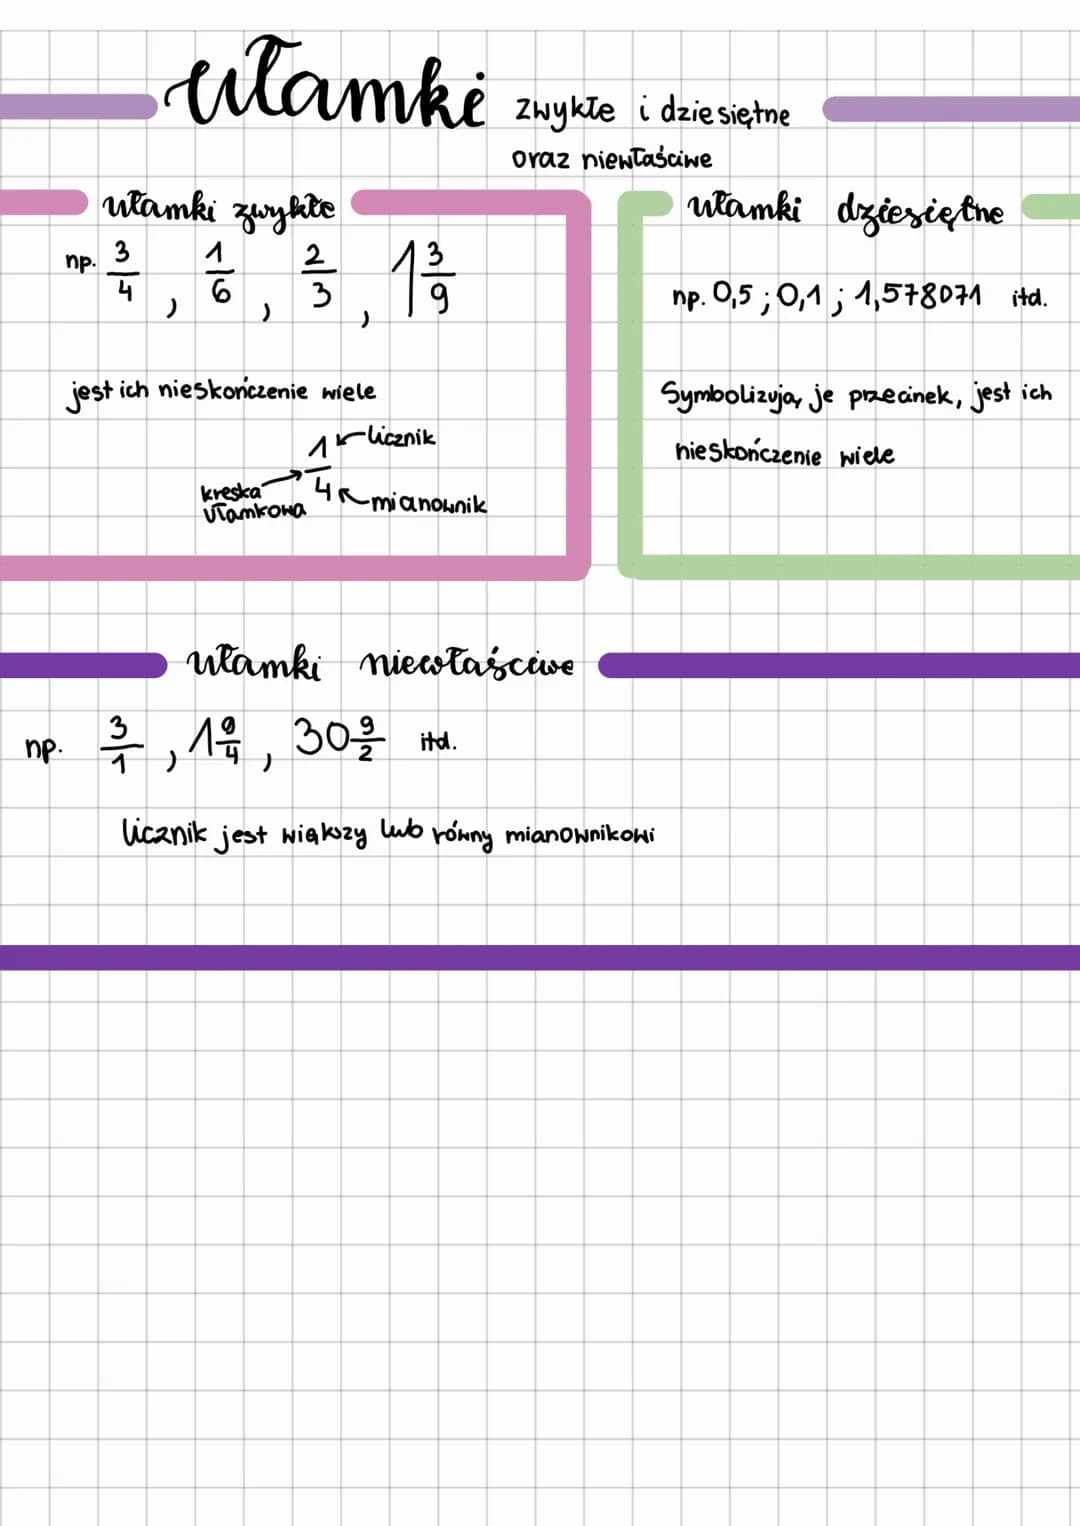 ułamki zwykłe i dziesiętne
oraz niewłaściwe
ułamki zwykłe
np. 3/4, 1/6, 2/3, 1 3/9
jest ich nieskończenie wiele
1 licznik
kreska ułamkowa
4 mianownik
ułamki dziesiętne
np. 0,5 ; 0,1 ; 1,578071 itd.
Symbolizują je przecinek, jest ich
nieskończenie wiele
ułamki niewłaściwe
np. 3/1, 1 9/4, 30 9/2 itd.
licznik jest większy lub równy mianownikowi